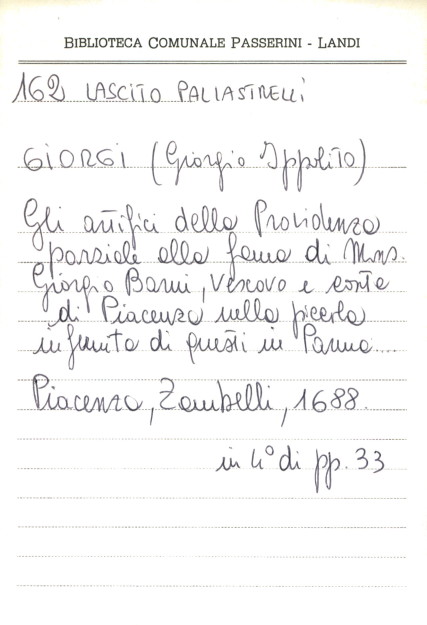 BIBLIOTECA COMUNALE PASSERINI - LANDI
162 LASCITO PALLASTRELLI
GIORGI (Giorgio Ippolito)
Gli artifici della Providenza
parziale alla fama di Mons.
Giorgio Barni, Vescovo e conte
di Piacenza nella
di questi in Parma...
Piacenza, Zambelli, 1688.
in 4° di pp. 33